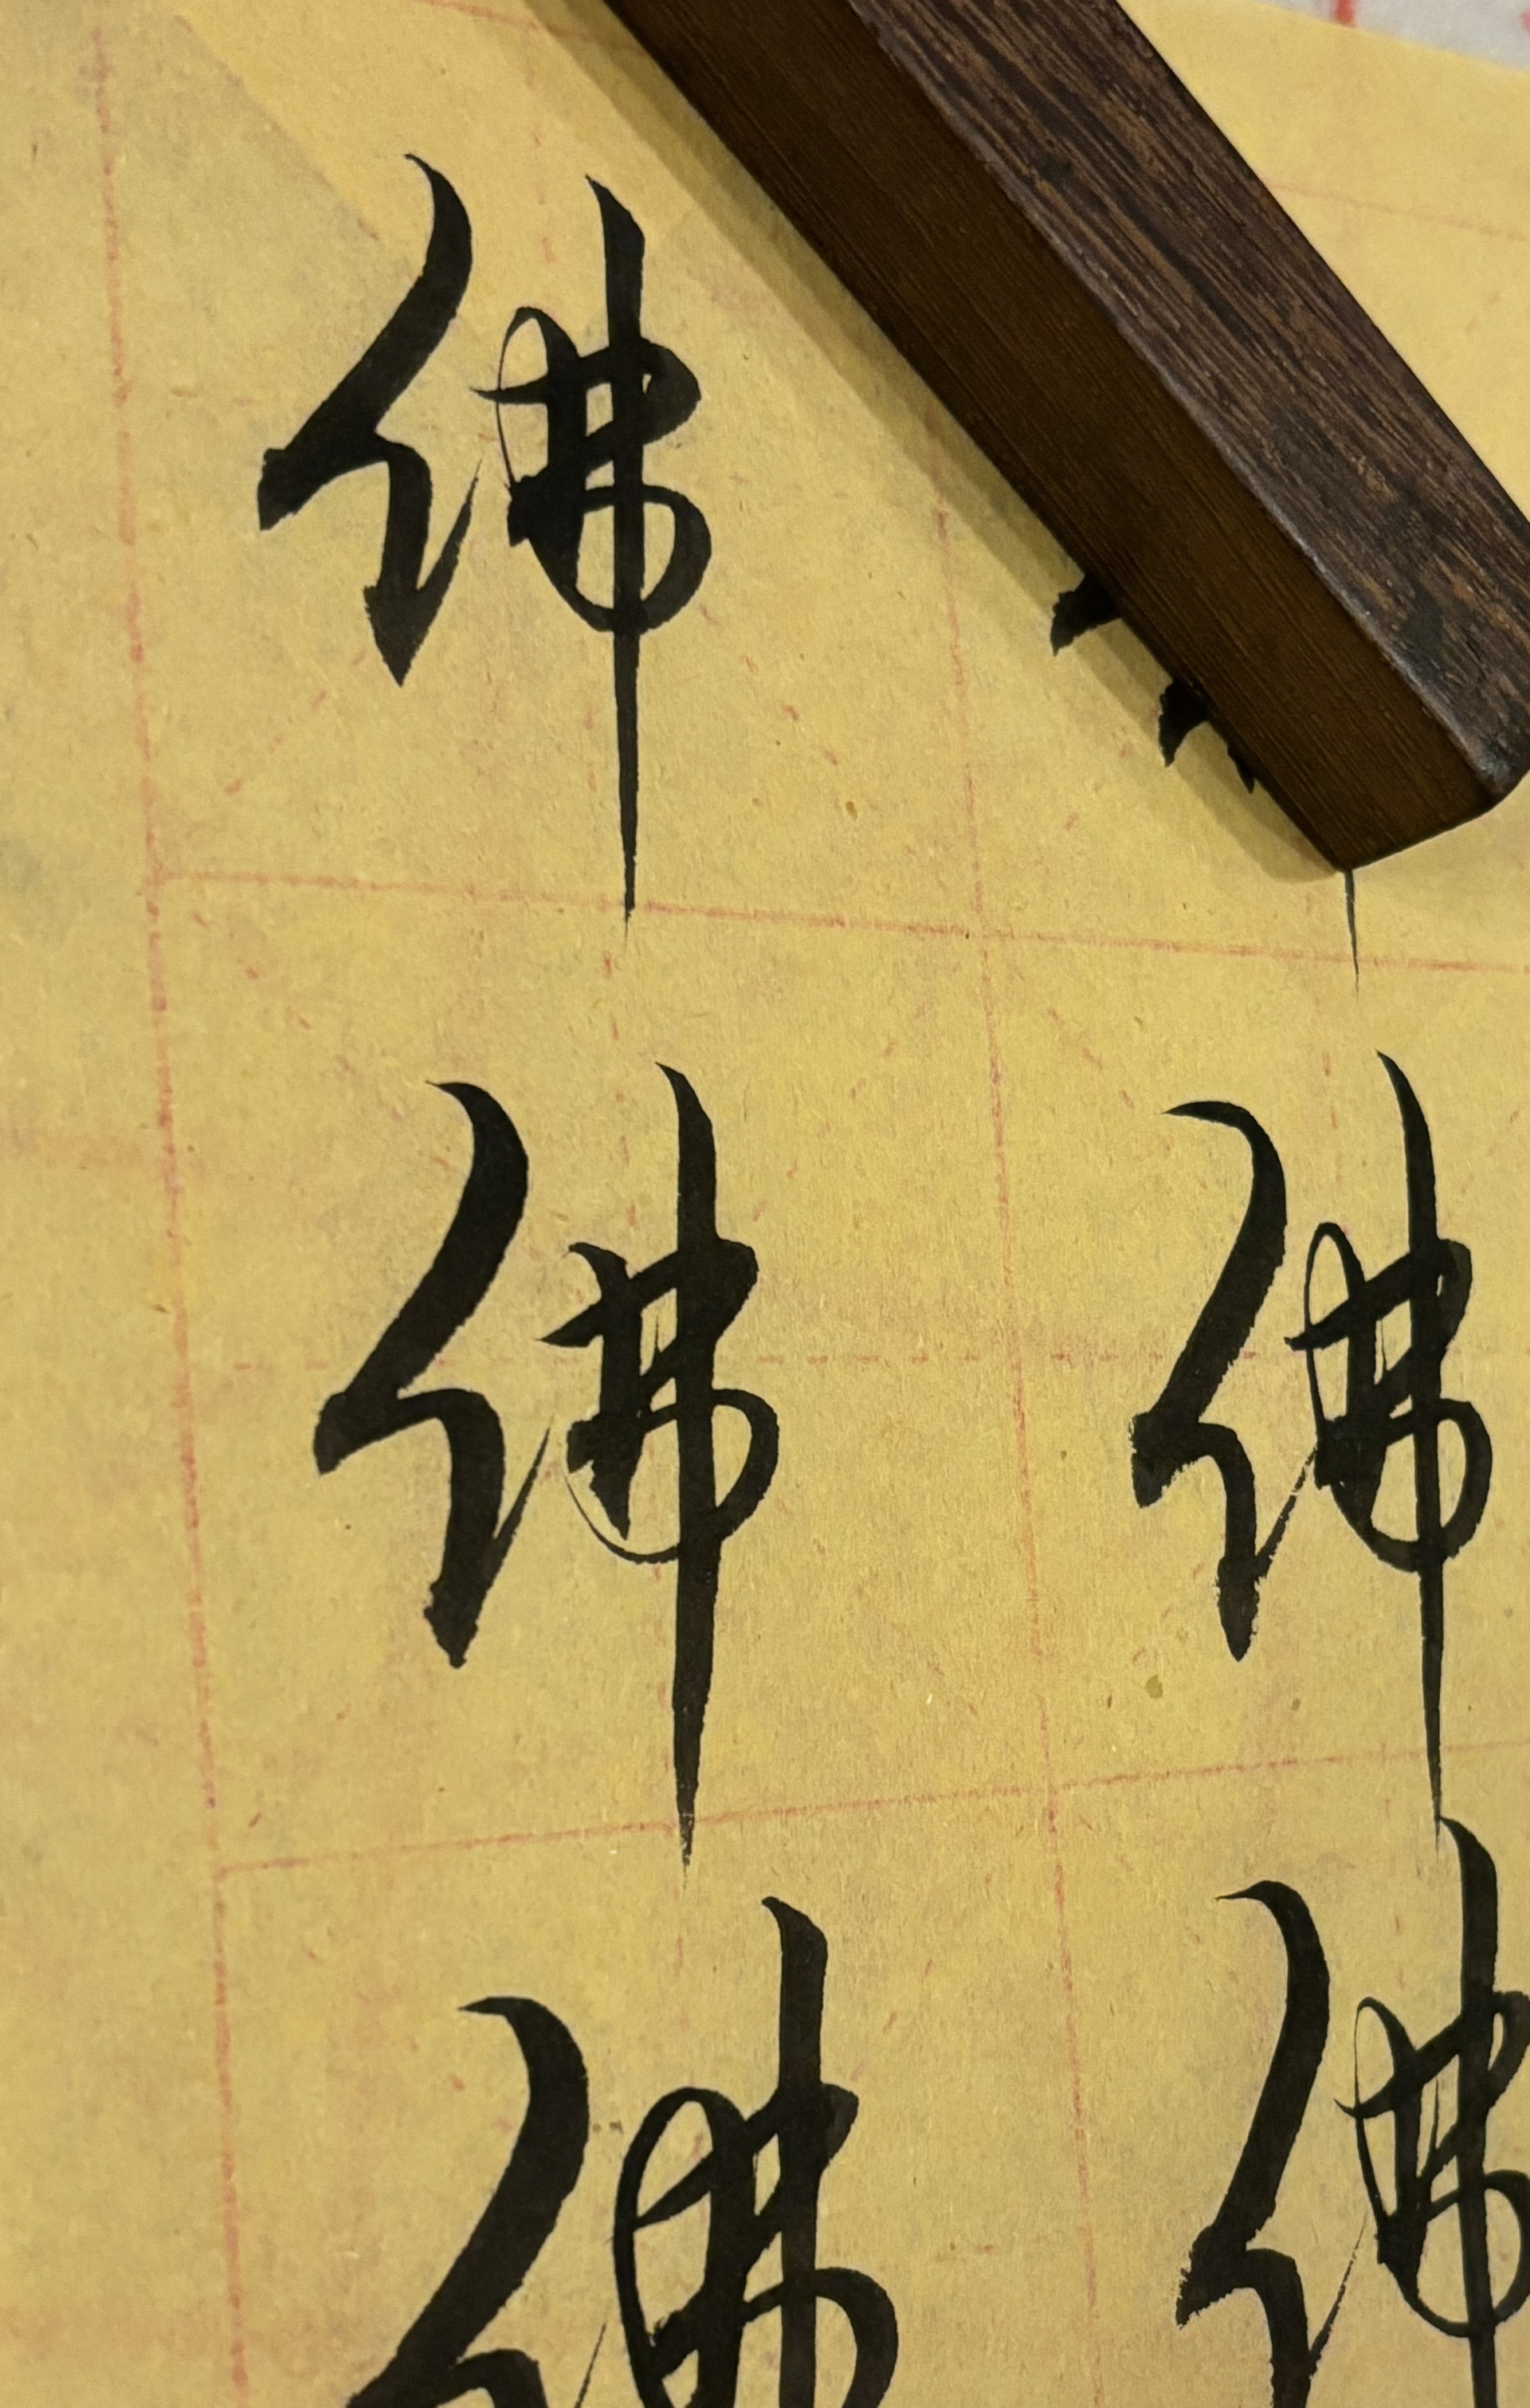 佛
佛 佛
佛 佛